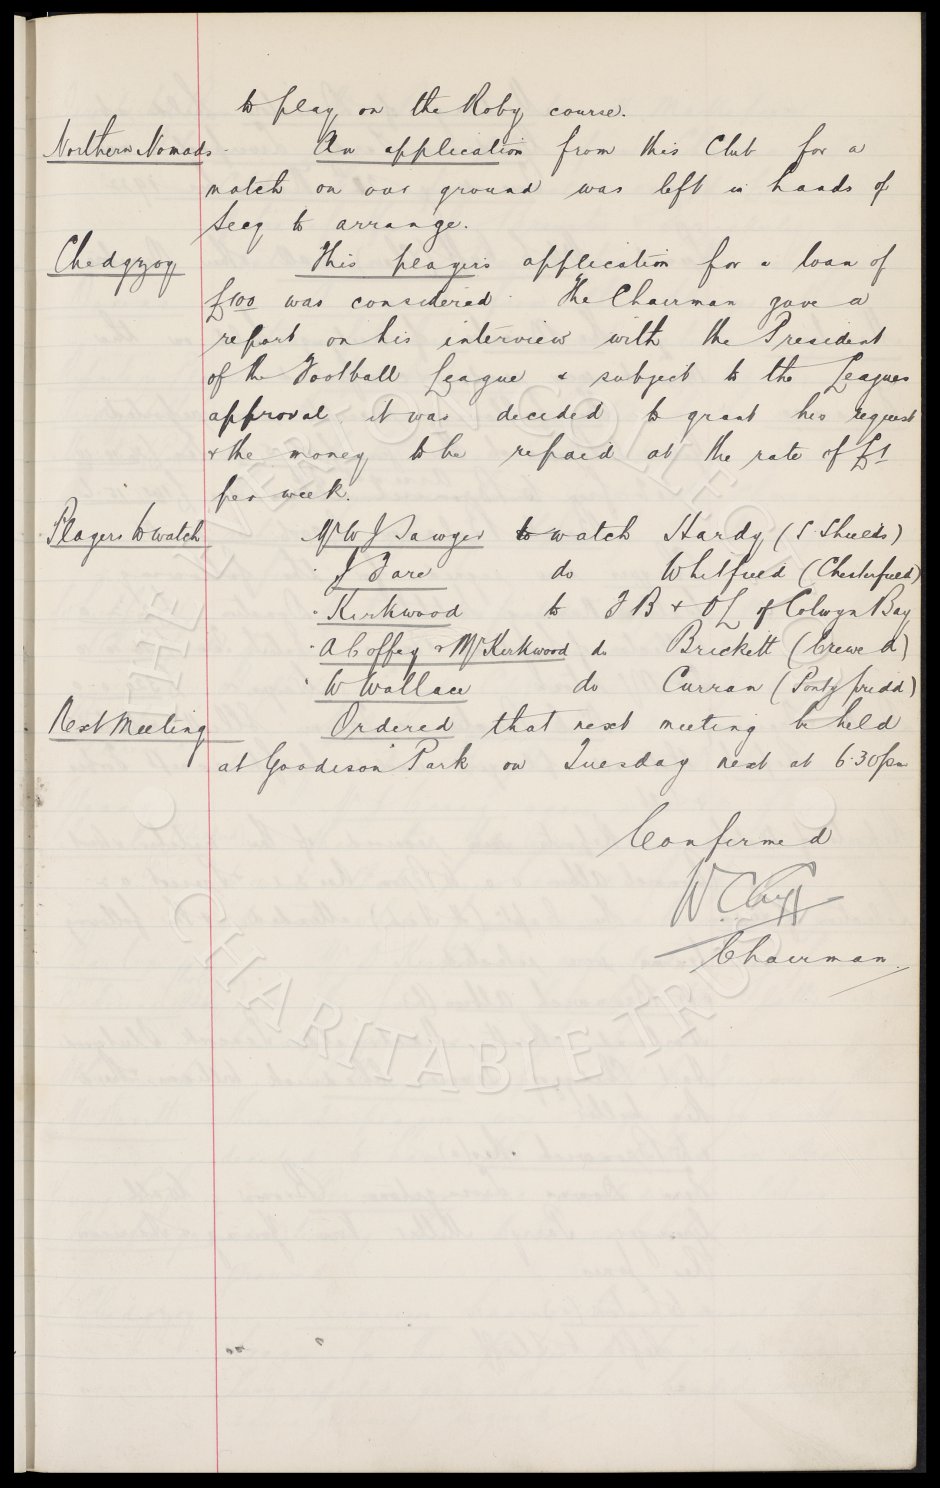 to play on the Roby course.
Northern Nomads. An application from this Club for a
match on our ground was left in hands of
Secy to arrange.
Chedgzoy This player's application for a loan of
£100 was considered. The Chairman gave a
report on his interview with the President
of the Football League & subject to the Leagues
approval it was decided to grant his request
& the money to be repaid at the rate of £1
per week.
Players to watch Mr W J Sawyer to watch Hardy (S. Shields)
" J Fare do Whitfield (Chesterfield)
" Kirkwood to F B & OL of Colwyn Bay
" A Coffey & Mr Kirkwood do Brickett (Crewe A)
" W Wallace do Curran (Pontypridd)
Next Meeting Ordered that next meeting be held
at Goodison Park on Tuesday next at 6.30 pm
Confirmed
W. C. Cuff
Chairman.
THE EVERTON COLLECTION
CHARITABLE TRUST